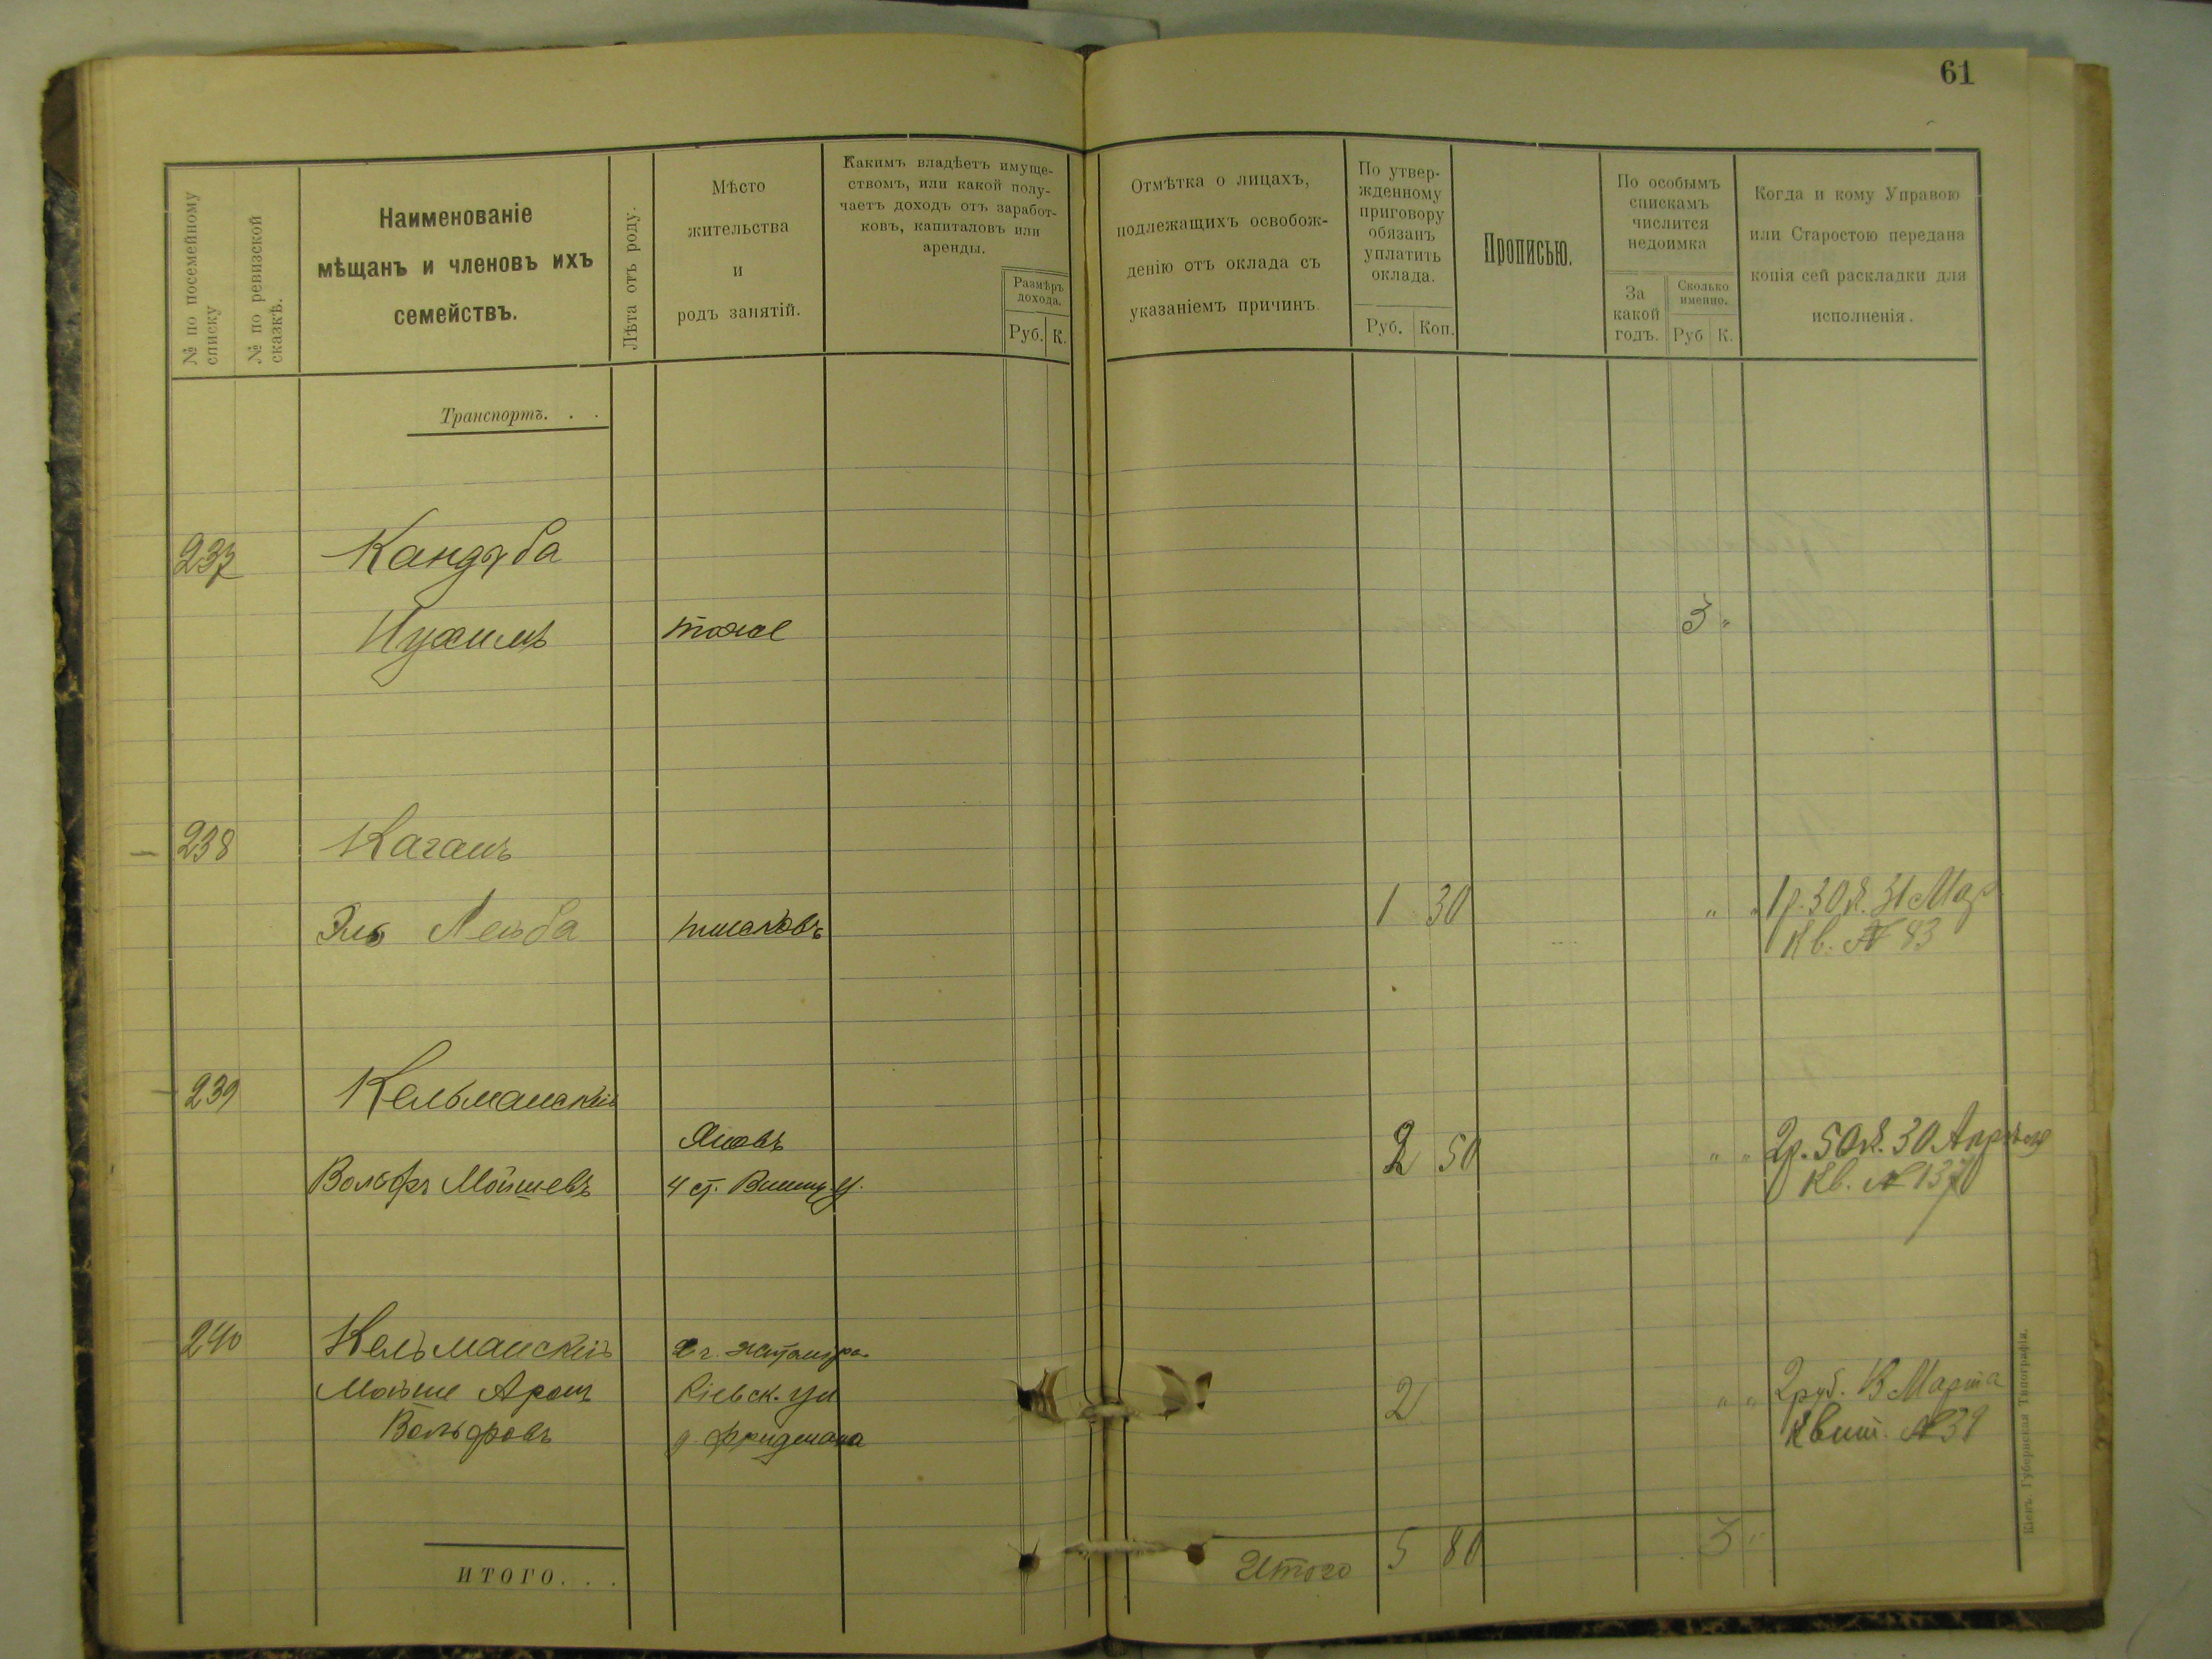 61
№ по посемейному
списку
№ по ревизской
сказкѣ.
Наименованіе
мѣщанъ и членовъ ихъ
семействъ.
Лѣта отъ роду.
Мѣсто
жительства
и
родъ занятій.
Какимъ владѣетъ имуще-
ствомъ, или какой полу-
чаетъ доходъ отъ заработ-
ковъ, капиталовъ или
аренды.
Размѣръ
дохода.
Руб. К.
Отмѣтка о лицахъ,
подлежащихъ освобож-
денію отъ оклада съ
указаніемъ причинъ.
По утвер-
жденному
приговору
обязанъ
уплатить
оклада.
Руб. Коп.
Прописью.
По особымъ
спискамъ
числится
недоимка
За
какой
годъ.
Сколько
именно.
Руб К.
Когда и кому Управою
или Старостою передана
копія сей раскладки для
исполненія.
Транспортъ. . .
237 Кандуба
Нухимъ тоже 3 "
238 Каганъ
Лейба 1 30 " " 1 р. 30 к. 31 Мар
Кв. № 83
239 Кельманскій
2 50 " " 2 р. 50 к. 30 Апрѣля
Вольфъ Мойшевъ Кв. № 137
240 Кельманскій
Мойше Аронъ Кіевск. ул 2 " " 2 руб. Марта
Вольфовъ д. Фридмана Квит. № 39
ИТОГО. . .
Итого 5 80 3 "
Кіевъ. Губернская Типографія.